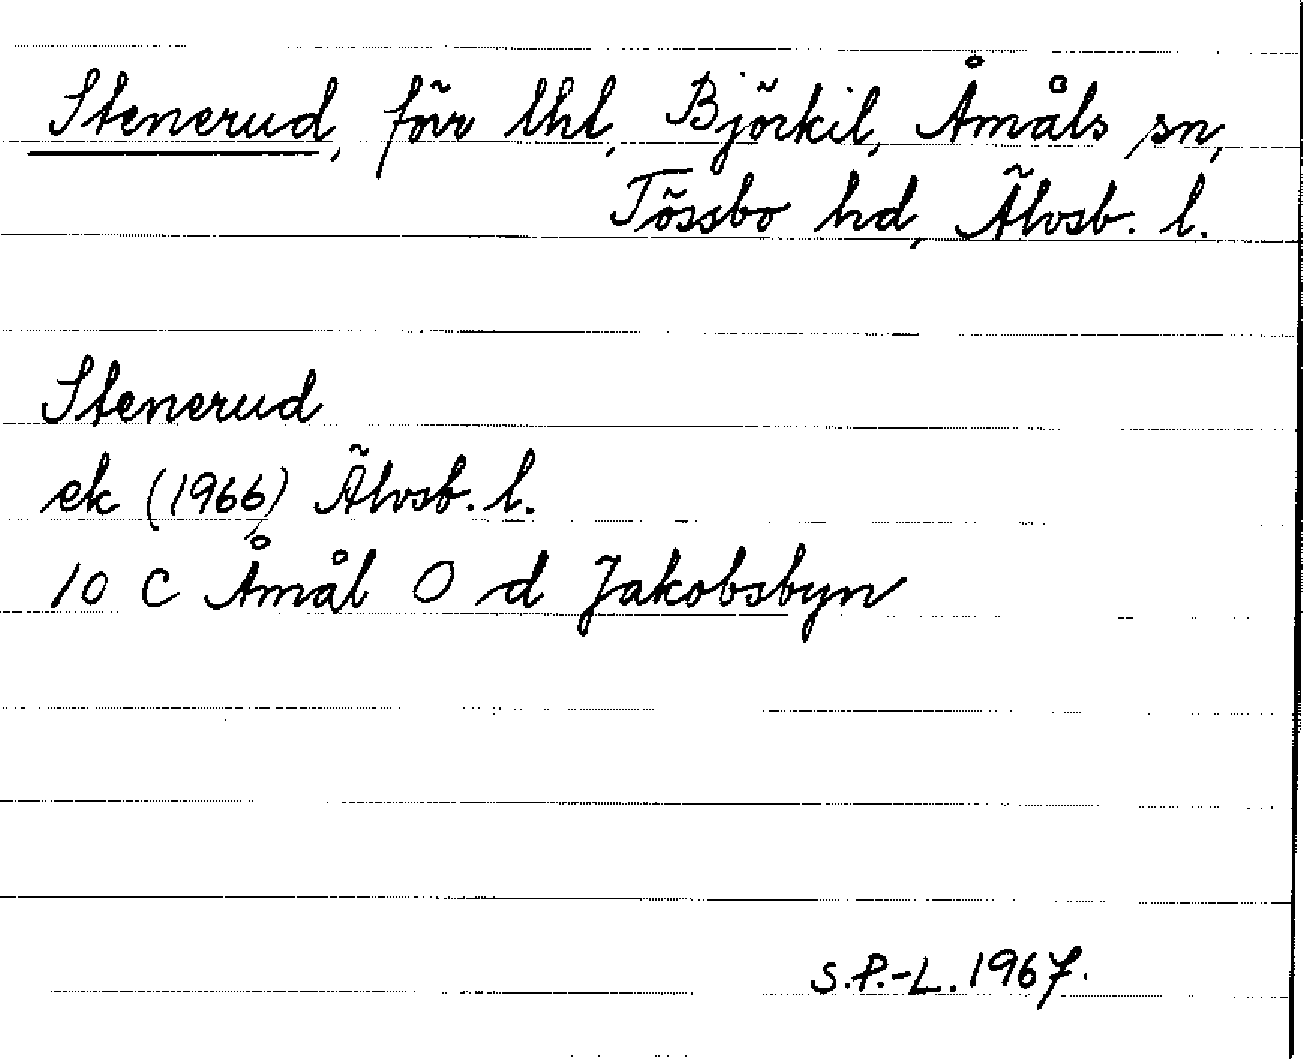 Stenerud, förr lht, Björkil, Åmåls sn,
Tössbo hd, Älvsb. l.
Stenerud
ek (1966) Älvsb. l.
10 C Åmål O d Jakobsbyn
S.P.-L. 1967.